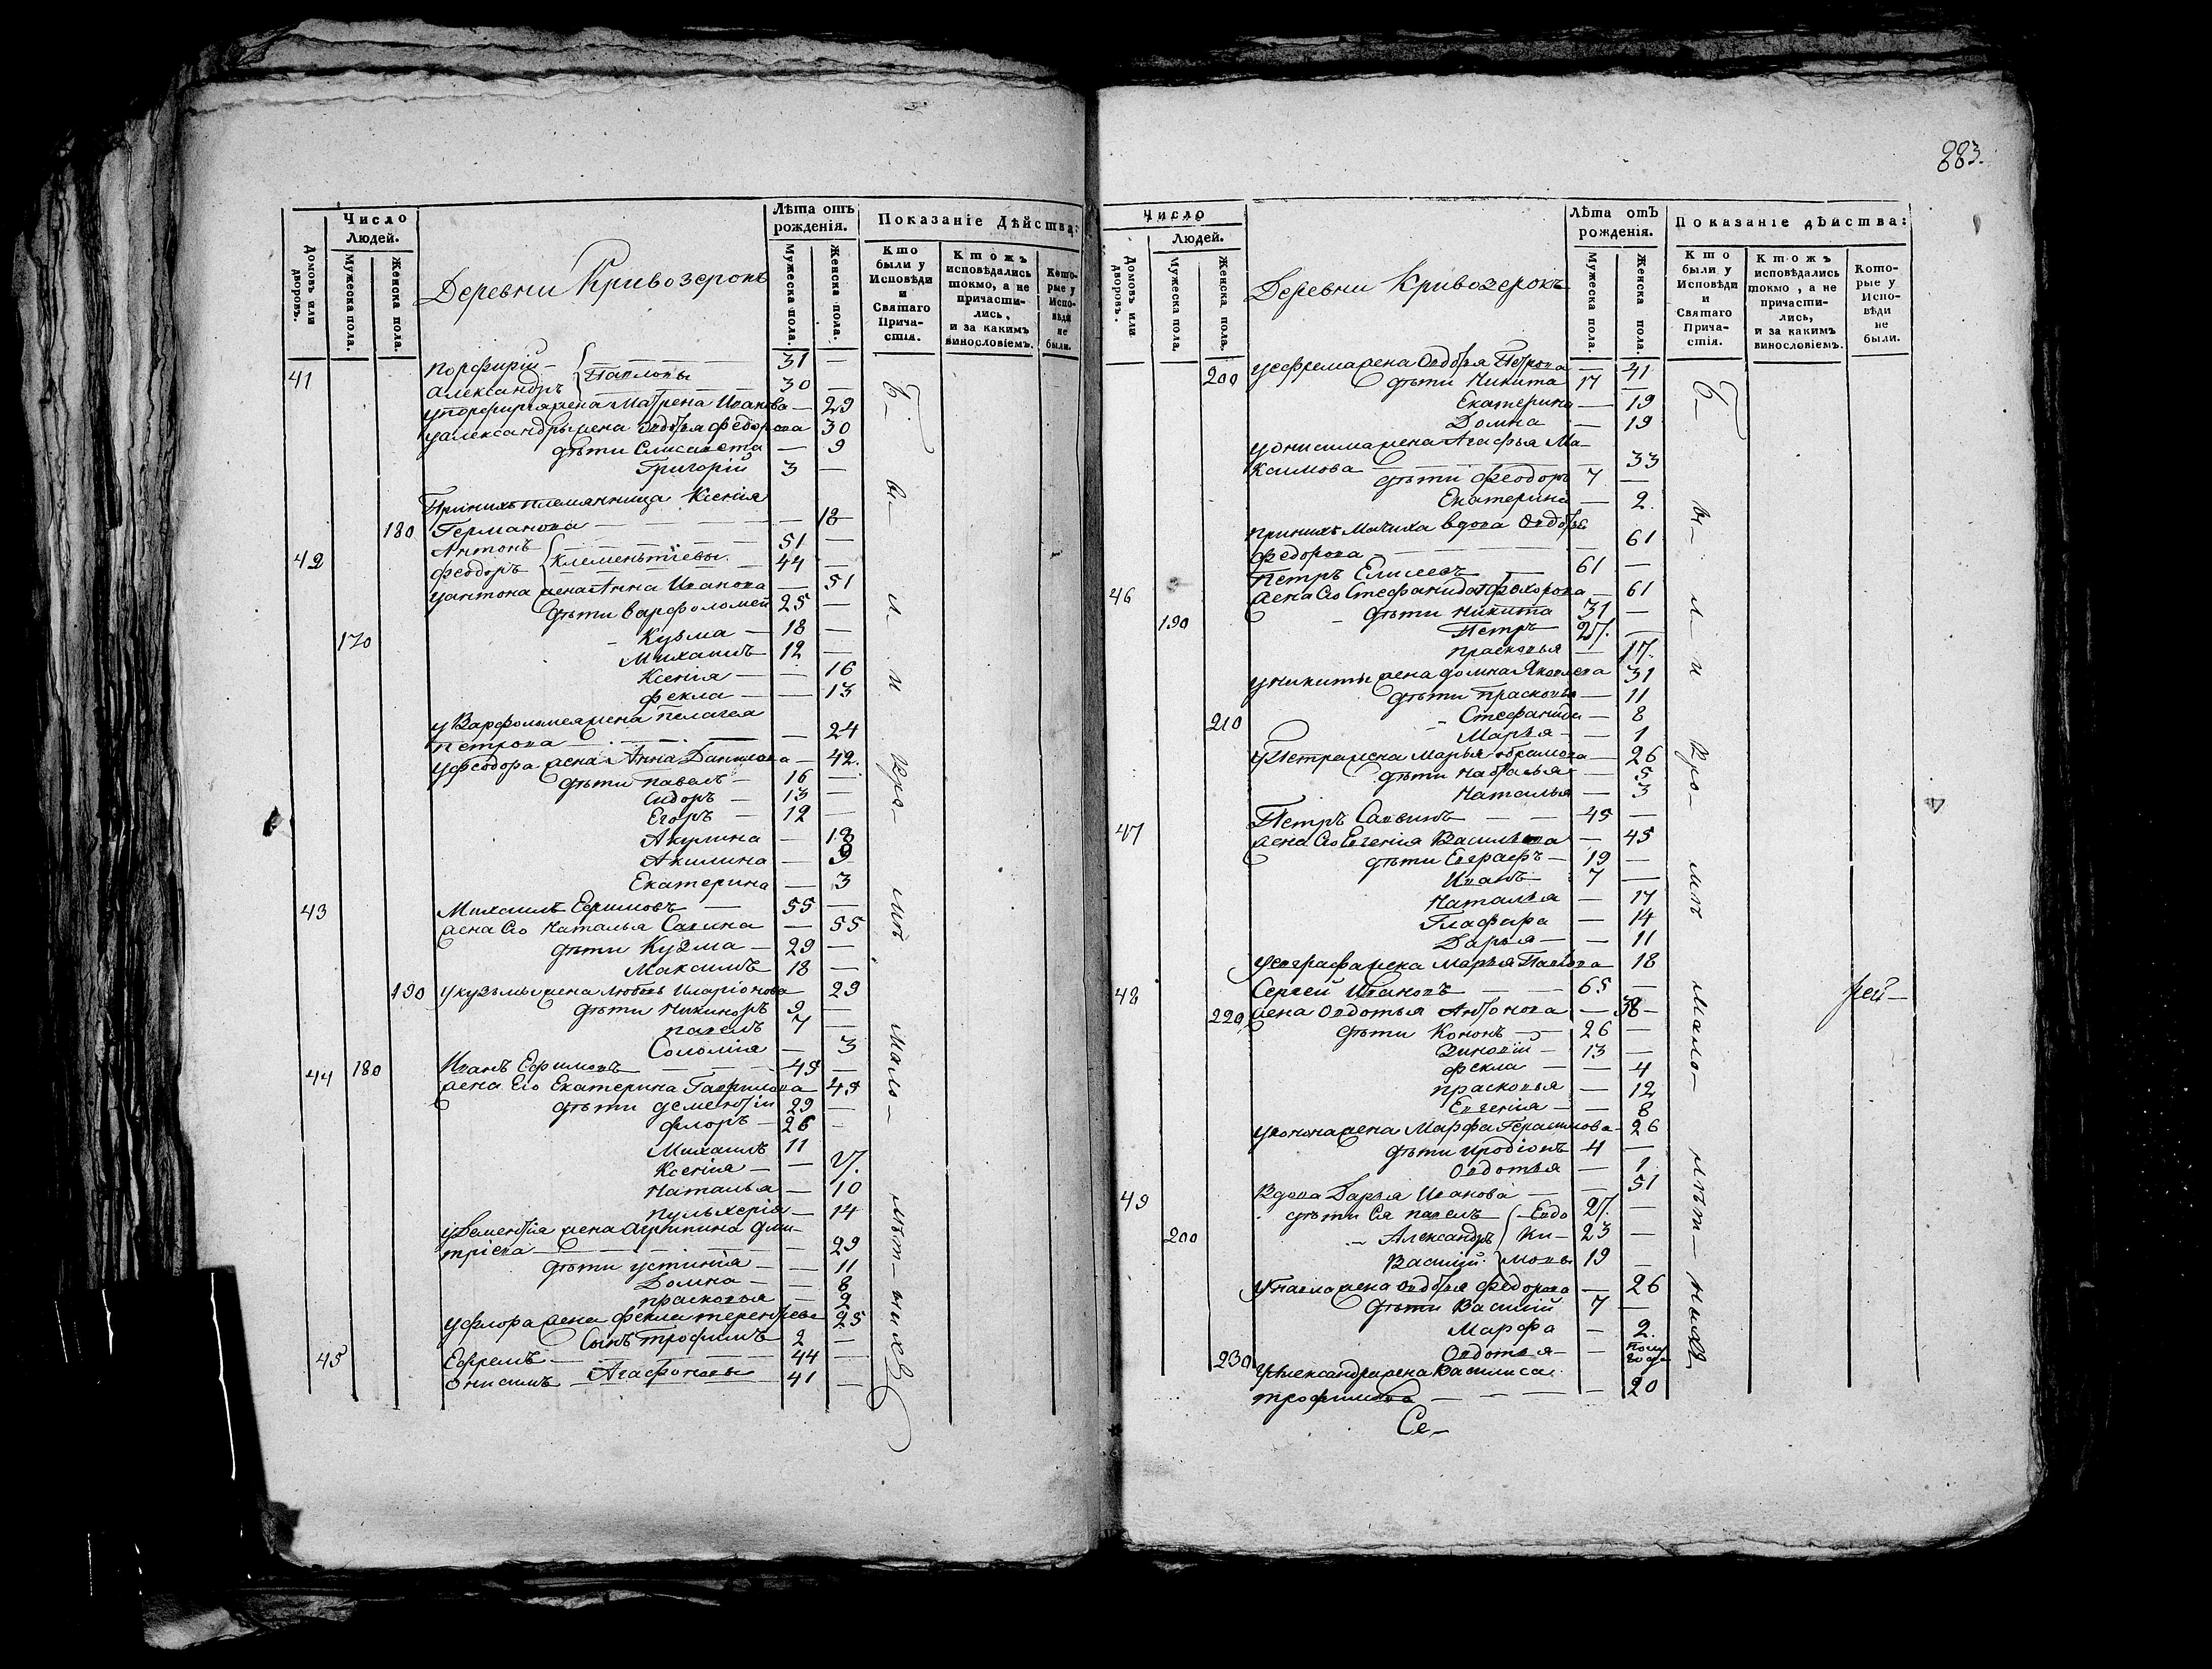 Число
Людей.
Домовъ или дворовъ.
Мужеска пола.
Женска пола.
Деревни Кривозерокъ
Лѣта отъ рожденія.
Мужеска пола.
Женска пола.
Показаніе Дѣйства:
Кто были у Исповѣди и Святаго Причастія.
Ктожъ исповѣдались токмо, а не причастились, и за какимъ винословіемъ.
Которые у Исповѣди не были.
41 Порфирій – { Павловы 31 –
Александръ 30 –
у порфирія жена Матрена Иванова – 29
у александры жена Овдотья федорова 30
дѣти Елисавета – 9
Григорій 3 –
При нихъ племянница Ксенія
180 Германова – 18
42 Антонъ { Клементіевы 51 –
Феодоръ 44 –
у антона жена Анна Иванова – 51
дѣти варфоломей 25 –
170 Кузма – 18 –
Михаилъ 12 –
Ксенія – 16
фекла – 13
у Варфоломея жена пелагея
петрова – 24
у феодора жена Анна Данилова – 42.
дѣти павелъ – 16 –
Сидоръ – 13 –
Егоръ – 12 –
Акулина – 18
Акилина – 9
Екатерина – 3
43 Михаилъ Ефимовъ – 55 –
жена Его Наталья Савина – 55
дѣти Кузма – 29 –
Максимъ 18 –
190 у кузьмы жена Любовь Иларіонова 29
дѣти Никиноръ 9 –
павелъ 7 –
Соломія – 3
44 180 Иванъ Ефимовъ – 45 –
жена Его Екатерина Гаврилова 45
дѣти дементій 29 –
флоръ – 26 –
Михаилъ 11
Ксенія – 27.
Наталья – 10
пульхерія – 14
у Дементія жена Агрипина дми-
тріева – 29
дѣти устинія – 11
Домна – 8
прасковья – 2
у флора жена фекла терентьева 25
Сынъ трофимъ 2 –
45 Ефремъ – 44 –
Онисимъ Агафоновы 41 –
бы-
ли
у
Испо-
883.
Число
Людей.
Домовъ или дворовъ.
Мужеска пола.
Женска пола.
Деревни Кривозерокъ
Лѣта отЪ рожденія.
Мужеска пола.
Женска пола.
Показаніе дѣйства:
Кто были у Исповѣди и Святаго Причастія.
Ктожъ исповѣдались токмо, а не причастились, и за какимъ винословіемъ.
Которые у Исповѣди не были.
200 у ефрема жена Овдотья Петрова – 41
дѣти Никита 17 –
Екатерина – 19
Домна – 19
у онисима жена Агафья Ма-
ксимова – 33
дѣти феодоръ 7 –
Екатерина – 2.
при нихъ Мачиха вдова Овдотья
федорова – 61
46 Петръ Елисеевъ 61 –
жена Его Стефанида – 61
190 дѣти Никита 31 –
Петръ 27. –
прасковья – 17.
у никиты жена домна Яковлева 31
дѣти прасковья – 11
210 Стефанида – 8
Марья – 1
у Петра жена Марья Абрамова – 26
дѣти – 5
Наталья – 3
47 Петръ Саввинъ – 45 –
жена Его Евгенія Васильева – 45
дѣти Евграфъ – 19 –
Иванъ – 7 –
Наталья – 17
Глафира – 14
Дарья – 11
у евграфа жена Марья Павлова 18
48 Сергей Ивановъ – 65 –
220 жена Овдотья Антонова – 38 –
дѣти Кононъ – 26 –
Зиновій – 13 –
фекла – 4
прасковья – 12
Евгенія – 8
у конона жена Марфа Герасимова – 26
дѣти иродіонъ 4 –
Овдотья – 1
49 Вдова Дарья Иванова – 51
дѣти Ея павелъ { Евдо 27. –
200 Александръ { ки- 23 –
Василій { мовы 19 –
у павла жена Овдотья федорова – 26
дѣти Василій 7 –
Марфа – 2.
230 Овдотья – полу года
у Александра жена Василиса
трофимова – 20
Се-